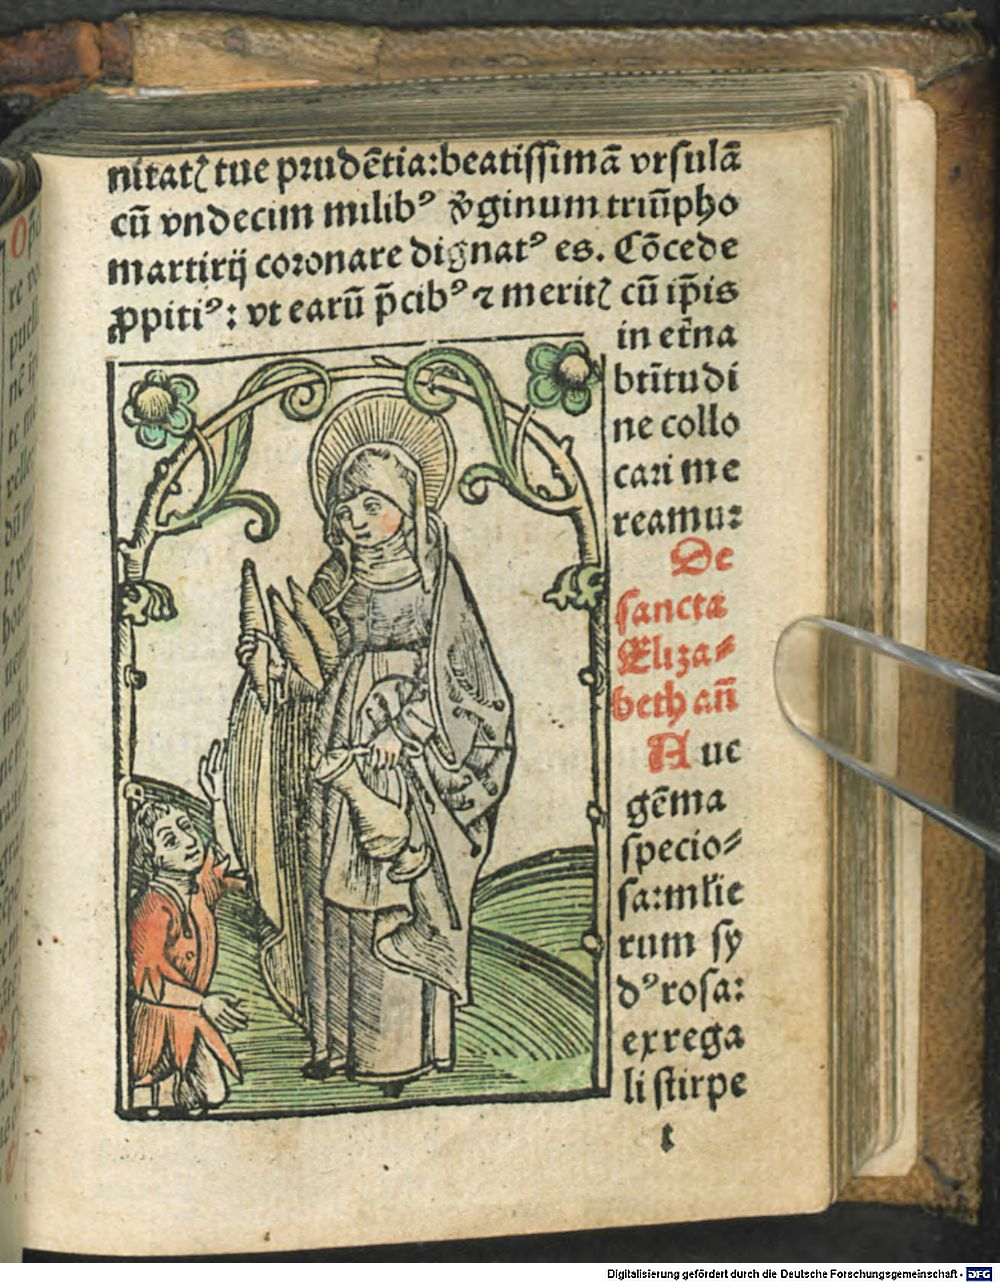 nitatꝭ tue prudētia:beatissimā vrsulā
cū vndecim milibꝰ ꝟginum triūpho
martirij coronare dignatꝰ es. Cōcede
ꝓpitiꝰ: vt earū p̄cibꝰ ⁊ meritꝭ cū ip̄is
in et̄na
btītudi
ne collo
cari me
reamur
De
sancta
Eliza⸗
beth añ
Aue
gēma
specio⸗
sa:ml̄ie
rum sy
dꝰ rosa:
ex rega
li stirpe
t
Digitalisierung gefördert durch die Deutsche Forschungsgemeinschaft - DFG